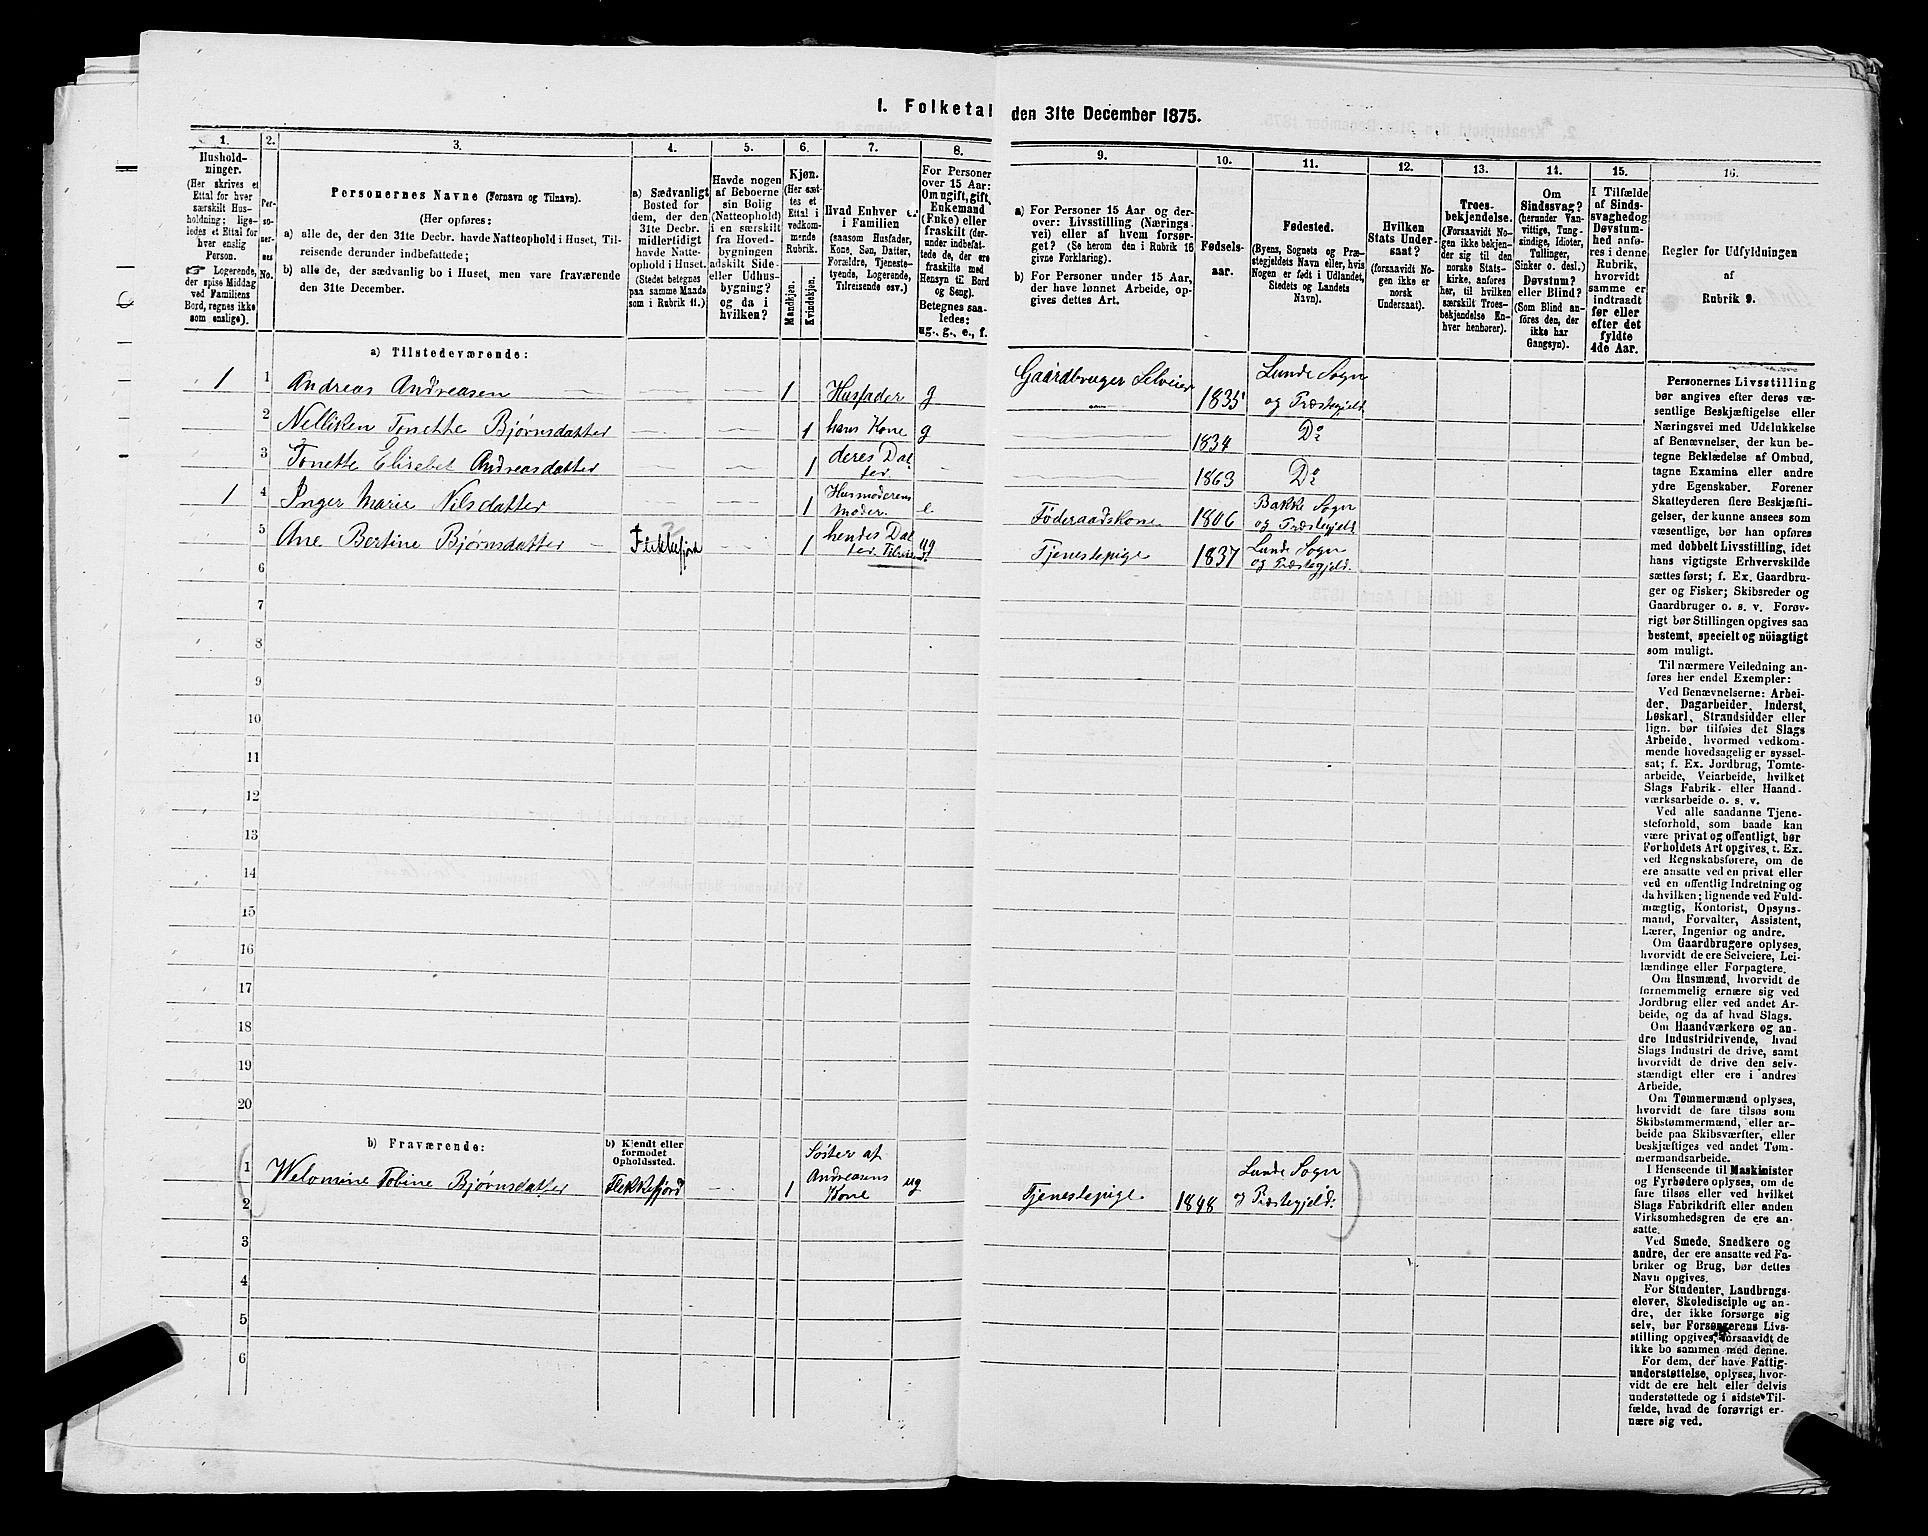 1. Folketal den 31te December 1875.
1.
Hushold-
ninger.
(Her skrives et
Ettal for hver
særskilt Hus-
holdning; lige-
ledes et Ettal for
hver enslig
Person.
☞ Logerende,
der spise Middag
ved Familiens
Bord, regnes ikke
som enslige).
2.
Per-
so-
ner-
nes
No.
3.
Personernes Navne (Fornavn og Tilnavn).
(Her opføres:
a) alle de, der den 31te Decbr. havde Natteophold i Huset, Til-
reisende derunder indbefattede;
b) alle de, der sædvanlig bo i Huset, men vare fraværende
den 31te December.
4.
a) Sædvanligt
Bosted for
dem, der den
31te Decbr.
midlertidigt
havde Natte-
ophold i Huset.
(Stedet betegnes
paa samme Maade
som i Rubrik 11.)
5.
Havde nogen
af Beboerne
sin Bolig
(Natteophold)
i en særskilt
fra Hoved-
bygningen
adskilt Side-
eller Udhus-
bygning?
og da i
hvilken?
6.
Kjøn.
(Her sæt-
tes et
Ettal i
vedkom-
mende
Rubrik.
Mandkjøn.
Kvindekjøn.
7.
Hvad Enhver er
i Familien
(saasom Husfader,
Kone, Søn, Datter,
Forældre, Tjeneste-
tyende, Logerende,
Tilreisende osv.)
8.
For Personer
over 15 Aar:
Om ugift, gift,
Enkemand
(Enke) eller
fraskilt (der-
under indbefat-
tede de, der ere
fraskilte med
Hensyn til Bord
og Seng).
Betegnes saa-
ledes:
ug., g., e., f.
9.
a) For Personer 15 Aar og der-
over: Livsstilling (Nærings-
vei) eller af hvem forsør-
get? (Se herom den i Rubrik 16
givne Forklaring).
b) For Personer under 15 Aar,
der have lønnet Arbeide, op-
gives dettes Art.
10.
Fødsels-
aar.
11.
Fødested.
(Byens, Sognets og Præ-
stegjeldets Navn eller, hvis
Nogen er født i Udlandet,
Stedets og Landets
Navn).
12.
Hvilken
Stats Under-
saat?
(forsaavidt No-
gen ikke er
norsk
Undersaat).
13.
Troes-
bekjendelse.
(Forsaavidt No-
gen ikke bekjen-
der sig til den
norske Stats-
kirke, anføres
her, til hvilken
særskilt Troes-
bekjendelse En-
hver henhører).
14.
Om
Sindssvag?
(herunder Van-
vittige, Tung-
sindige, Idioter,
Tullinger,
Sinker o. desl.)
Døvstum?
eller Blind?
(Som Blind an-
føres den, der
ikke har
Gangsyn).
15.
I Tilfælde
af Sinds-
svaghed og
Døvstum-
hed anfø-
res i denne
Rubrik,
hvorvidt
samme er
indtraadt
før eller
efter det
fyldte
4de Aar.
16.
Regler for Udfyldningen
af
Rubrik 9.
a) Tilstedeværende:
1 1 Andreas Andreasen 1 Husfader g Gaardbruger Selveier 1835 Lunde Sogn og Præstegjeld
2 Nelliken Tonette Bjørnsdatter 1 hans Kone g 1834 Do
3 Tonette Elisabet Andreasdatter 1 deres Datter 1863 Do
1 4 Inger Marie Nilsdatter 1 Husmoderens Moder e Føderaadskone 1806 Bakke Sogn og Præstegjeld
5 Ane Bertine Bjørnsdatter Flekkefjord 1 hendes Datter, Tilreisend. ug Tjenestepige 1837 Lunde Sogn og Præstegjeld.
6
7
8
9
10
11
12
13
14
15
16
17
18
19
20
b) Fraværende:
b) Kjendt eller
formodet
Opholdssted.
1 Welomine Tobine Bjørnsdatter Flekkefjord 1 Søster af Andreasens Kone ug Tjenestepige 1848 Lunde Sogn og Præstegjeld.
2
3
4
5
6
Personernes Livsstilling
bør angives efter deres væ-
sentlige Beskjæftigelse eller
Næringsvei med Udelukkelse
af Benævnelser, der kun be-
tegne Beklædelse af Ombud,
tagne Examina eller andre
ydre Egenskaber. Forener
Skatteyderen flere Beskjæfti-
gelser, der kunne ansees som
væsentlige, bør han opføres
med dobbelt Livsstilling, idet
hans vigtigste Erhvervskilde
sættes først; f. Ex. Gaardbru-
ger og Fisker; Skibsreder og
Gaardbruger o. s. v. Forøv-
rigt bør Stillingen opgives saa
bestemt, specielt og nöiagtigt
som muligt.
Til nærmere Veiledning an-
føres her endel Exempler:
Ved Benævnelserne: Arbei-
der, Dagarbeider, Inderst,
Løskarl, Strandsidder eller
lign. bør tilføies det Slags
Arbeide, hvormed vedkom-
mende hovedsagelig er syssel-
sat; f. Ex. Jordbrug, Tomte-
arbeide, Veiarbeide, hvilket
Slags Fabrik- eller Haand-
værksarbeide o. s. v.
Ved alle saadanne Tjene-
steforhold, som baade kan
være privat og offentligt, bør
Forholdets Art opgives, t. Ex.
ved Regnskabsførere, om de
ere ansatte ved en privat eller
ved en offentlig Indretning og
da hvilken; lignende ved Fuld-
mægtig, Kontorist, Opsyns-
mand, Forvalter, Assistent,
Lærer, Ingeniør og andre.
Om Gaardbrugere oplyses,
hvorvidt de ere Selveiere, Lei-
lændinge eller Forpagtere.
Om Husmænd, hvorvidt de
fornemmelig ernære sig ved
Jordbrug eller ved andet Ar-
beide, og da af hvad Slags.
Om Haandværkere og an-
dre Industridrivende, hvad
Slags Industri de drive, samt
hvorvidt de drive den selv-
stændigt eller ere i andres
Arbeide.
Om Tømmermænd oplyses,
hvorvidt de fare tilsøs som
Skibstømmermænd, eller ar-
beide paa Skibsværfter, eller
beskjæftiges ved andet Tøm-
mermandsarbeide.
I Henseende til Maskinister
og Fyrbødere oplyses, om de
fare tilsøs eller ved hvilket
Slags Fabrikdrift eller anden
Virksomhedsgren de ere an-
satte.
Ved Smede, Snedkere og
andre, der ere ansatte ved Fa-
briker og Brug, bør dettes
Navn opgives.
For Studenter, Landbrugs-
elever, Skoledisciple og an-
dre, der ikke forsørge sig
selv, bør Forsørgerens Livs-
stilling opgives, forsaavidt de
ikke bo sammen med denne.
For dem, der have Fattig-
understøttelse, oplyses, hvor-
vidt de ere helt eller delvis
understøttede og i sidste Til-
fælde, hvad de forøvrigt er-
nære sig ved.